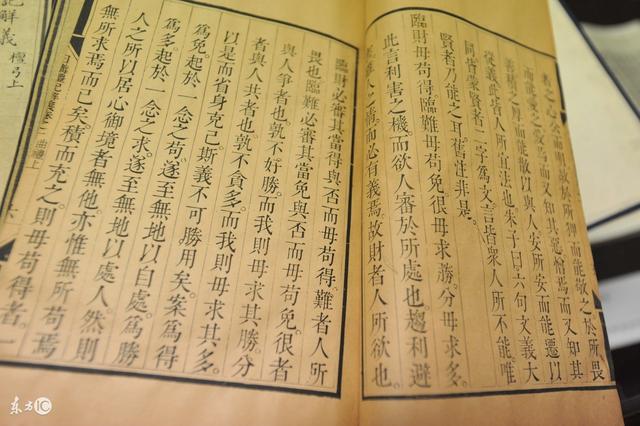 者之心公而明故於所狎而能敬之於所畏
而能愛之愛焉而又知其惡憎焉而又知其
善積而能散以與人安所安而能遷以
從義此皆人所宜法也朱子曰六句文義大
同皆蒙賢者二字為文言皆衆人所不能唯
賢者乃能之耳舊注非是。
臨財毋苟得。臨難毋苟免。很毋求勝。分毋求多。
此言利害之機。而欲人審於所處也。趨利避
人情。而必有義焉。故財者人所欲也。
臨財必審其當得與否。而毋苟得。難者人所
畏也。臨難必審其當免與否。而毋苟免。很者
與人爭者也。孰不好勝。而我則毋求其勝。分
者與人共者也。孰不貪多。而我則毋求其多。
以是而省身克己。斯義不可勝用矣。案為得
為免。起於一念之苟。遂至無地以自處。為勝
為多。起於一念之求。遂至無地以處人。然則
人之所以居心御境者無他。亦惟無所苟焉
無所求焉而已矣。積而充之。則毋苟得者。一
日講禮記解義 卷二 曲禮上
記解義 檀弓上
東方IC